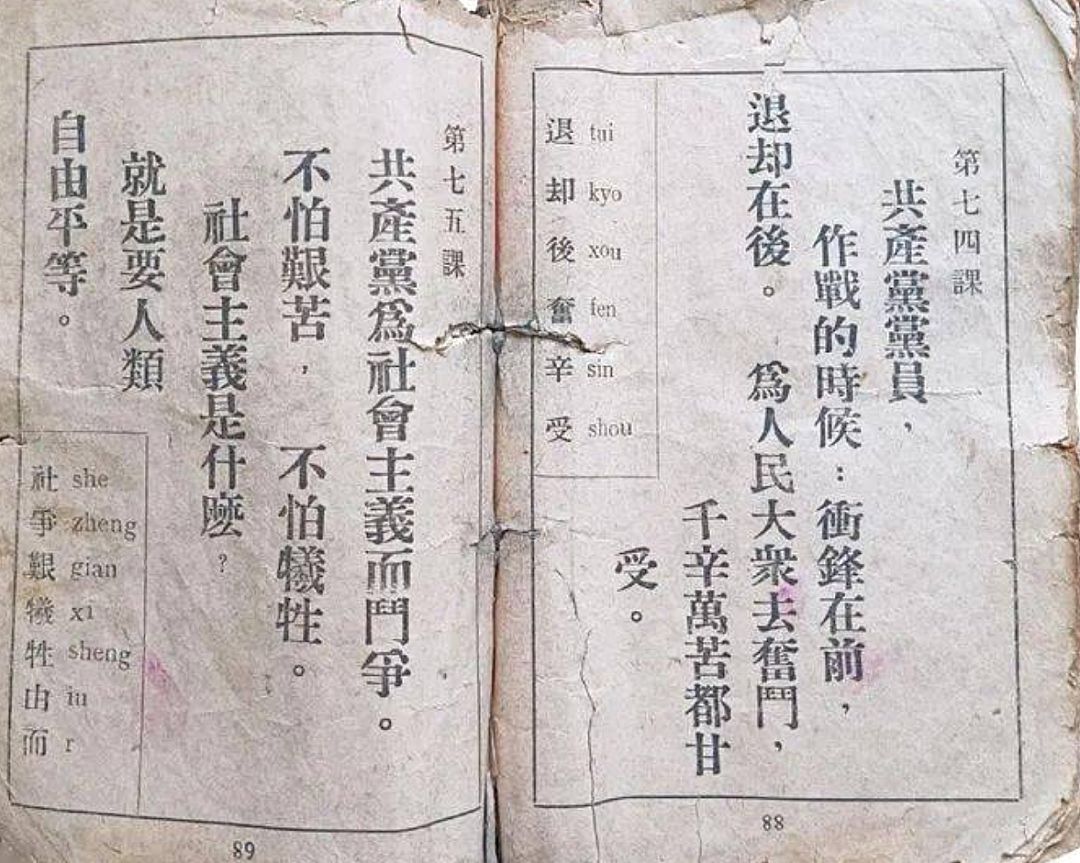 第七四課
共產黨黨員，
作戰的時候：衝鋒在前，
退却在後。　爲人民大衆去奮鬥，
千辛萬苦都甘
受。
退 tui
却 kyo
後 xou
奮 fen
辛 sin
受 shou
88
第七五課
共產黨爲社會主義而鬥爭。
不怕艱苦，　不怕犧牲。
社會主義是什麽？
就是要人類
自由平等。
社 she
爭 zheng
艱 gian
犧 xi
牲 sheng
由 iu
而 r
89